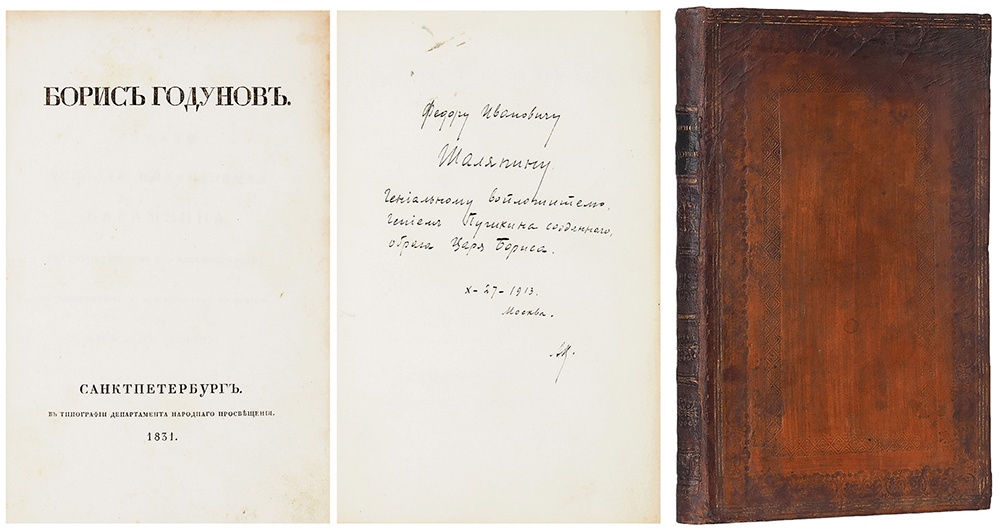 БОРИСЪ ГОДУНОВЪ.
САНКТПЕТЕРБУРГЪ.
ВЪ ТИПОГРАФІИ ДЕПАРТАМЕНТА НАРОДНАГО ПРОСВѢЩЕНІЯ.
1831.
Федору Ивановичу
Шаляпину
геніальному воплотителю,
геніемъ Пушкина созданнаго,
образа Царя Бориса.
X-27-1913.
Москва.